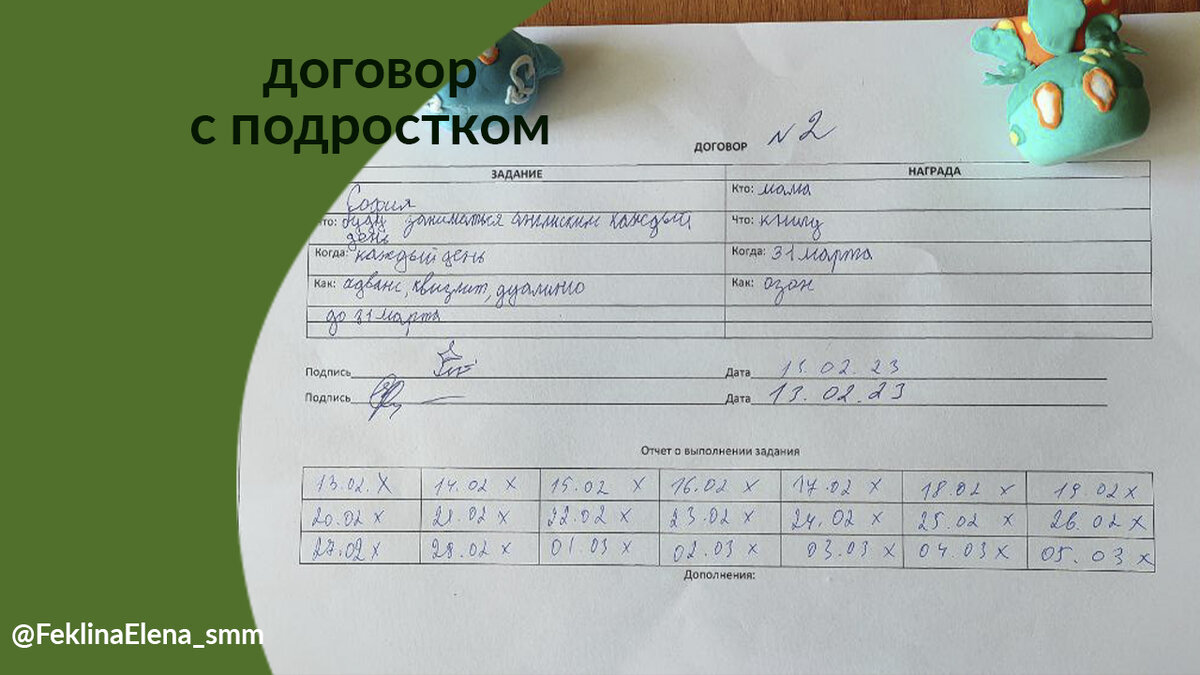 договор
с подростком
ДОГОВОР N 2
ЗАДАНИЕ НАГРАДА
София Кто: мама
то: буду заниматься англиским каждый день Что: книгу
Когда: каждый день Когда: 31 марта
Как: адванс, квизлит, дуалинго Как: озон
до 31 марта
Подпись Дата 13.02.23
Подпись Дата 13.02.23
Отчет о выполнении задания
13.02. X 14.02 X 15.02 X 16.02 X 17.02 X 18.02 X 19.02 X
20.02 X 21.02 X 22.02 X 23.02 X 24.02 X 25.02 X 26.02 X
27.02 X 28.02 X 01.03 X 02.03 X 03.03 X 04.03 X 05.03 X
Дополнения:
@FeklinaElena_smm